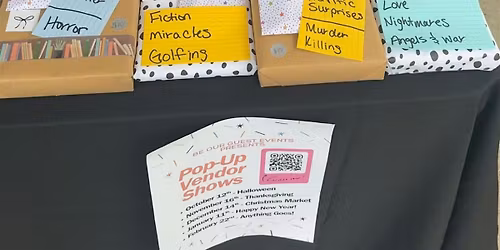 Horror
Fiction
miracles
Golfing
Surprises
Murder
Killing
Love
Nightmares
Angels & War
BE OUR GUEST EVENTS
PRESENTS
Pop-Up
Vendor
Shows
• October 12th - Halloween
• November 16th - Thanksgiving
• December 14th - Christmas Market
• January 11th - Happy New Year!
• February 22nd - Anything Goes!